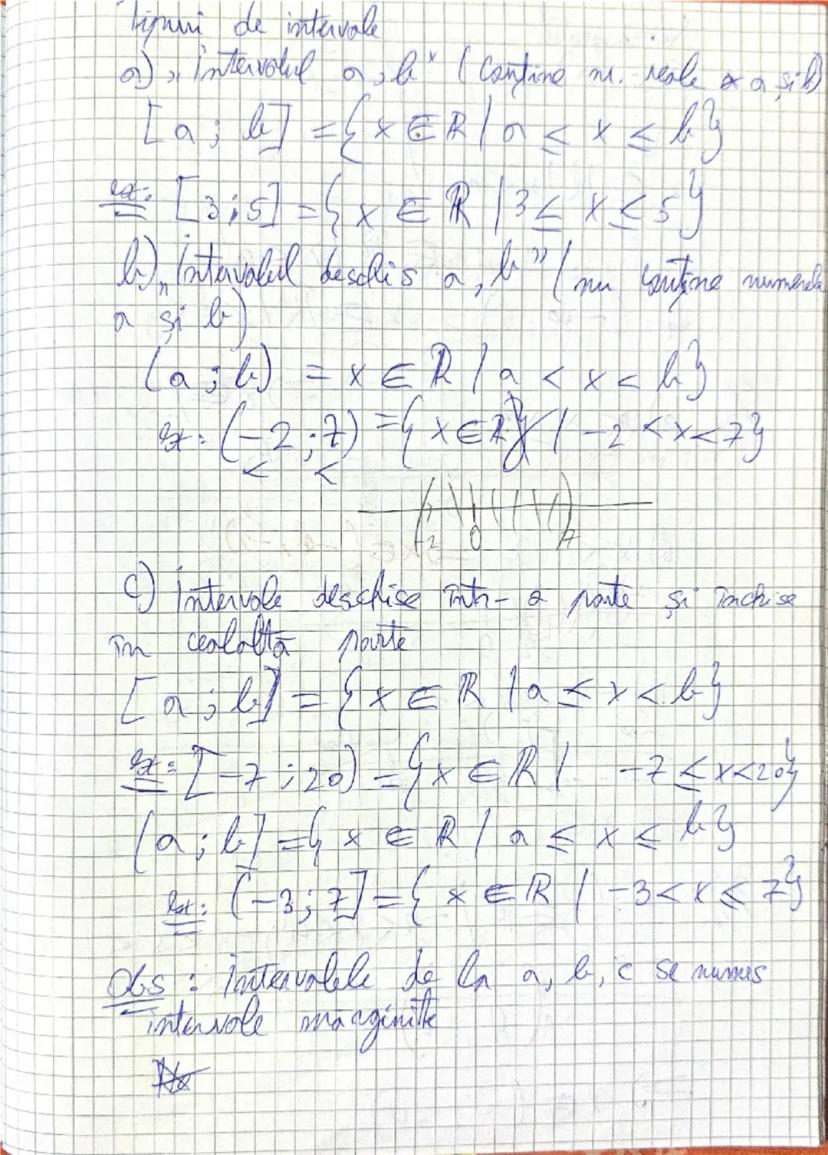 Tipuri de intervale
a) „Intervalul a, b" (conține nr. reale a și b)
[a; b] = {x ∈ ℝ / a ≤ x ≤ b}
ex: [3; 5] = {x ∈ ℝ / 3 ≤ x ≤ 5}
b) „Intervalul deschis a, b" (nu conține numerele
a și b)
(a; b) = x ∈ ℝ / a < x < b}
ex: (-2; 7) = {x ∈ ℝ} / -2 < x < 7}
< <
-2 0 7
c) Intervale deschise într-o parte și închise
în cealaltă parte
[a; b) = {x ∈ ℝ / a ≤ x < b}
ex: [-7; 20) = {x ∈ ℝ / -7 ≤ x < 20}
(a; b] = {x ∈ ℝ / a ≤ x ≤ b}
ex: (-3; 7] = {x ∈ ℝ / -3 < x ≤ 7}
Obs: Intervalele de la a, b, c se numes
intervale mărginite